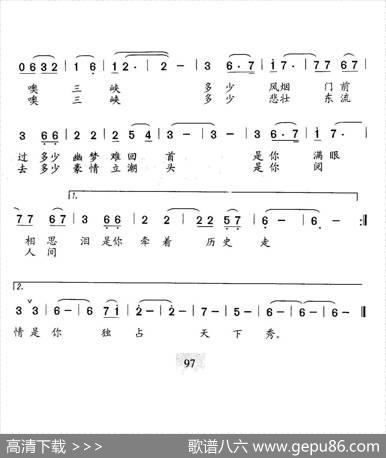 0 6 3 2 | 1 6 | 1 2· | 2 – | 3 6·7 | 1 7· | 7 – |
噢 三 峡 多少 风烟 门前
噢 三 峡 多少 悲壮 东流
3 6 6 | 2 2 | 2 5 4 | 3 – | 3 – | 3 6·7 | 1 7 |
过 多少 幽梦 难回 首 是你 满眼
去 多少 豪情 立潮 头 是你 阅
1.
7 7 6 7 | 3 6 6 | 2 2 | 2 2 5 7 | 6 – | 6 – :|
相思 泪是你 牵着 历史 走
人间
2.
3 3 | 6 – | 6 7 1 | 2 – | 2 – | 7 – | 5 – | 6 – | 6 – | 6 – | 6 – ||
情是你 独占 天下秀。
97
高清下载 >>>
歌谱八六 www.gepu86.com